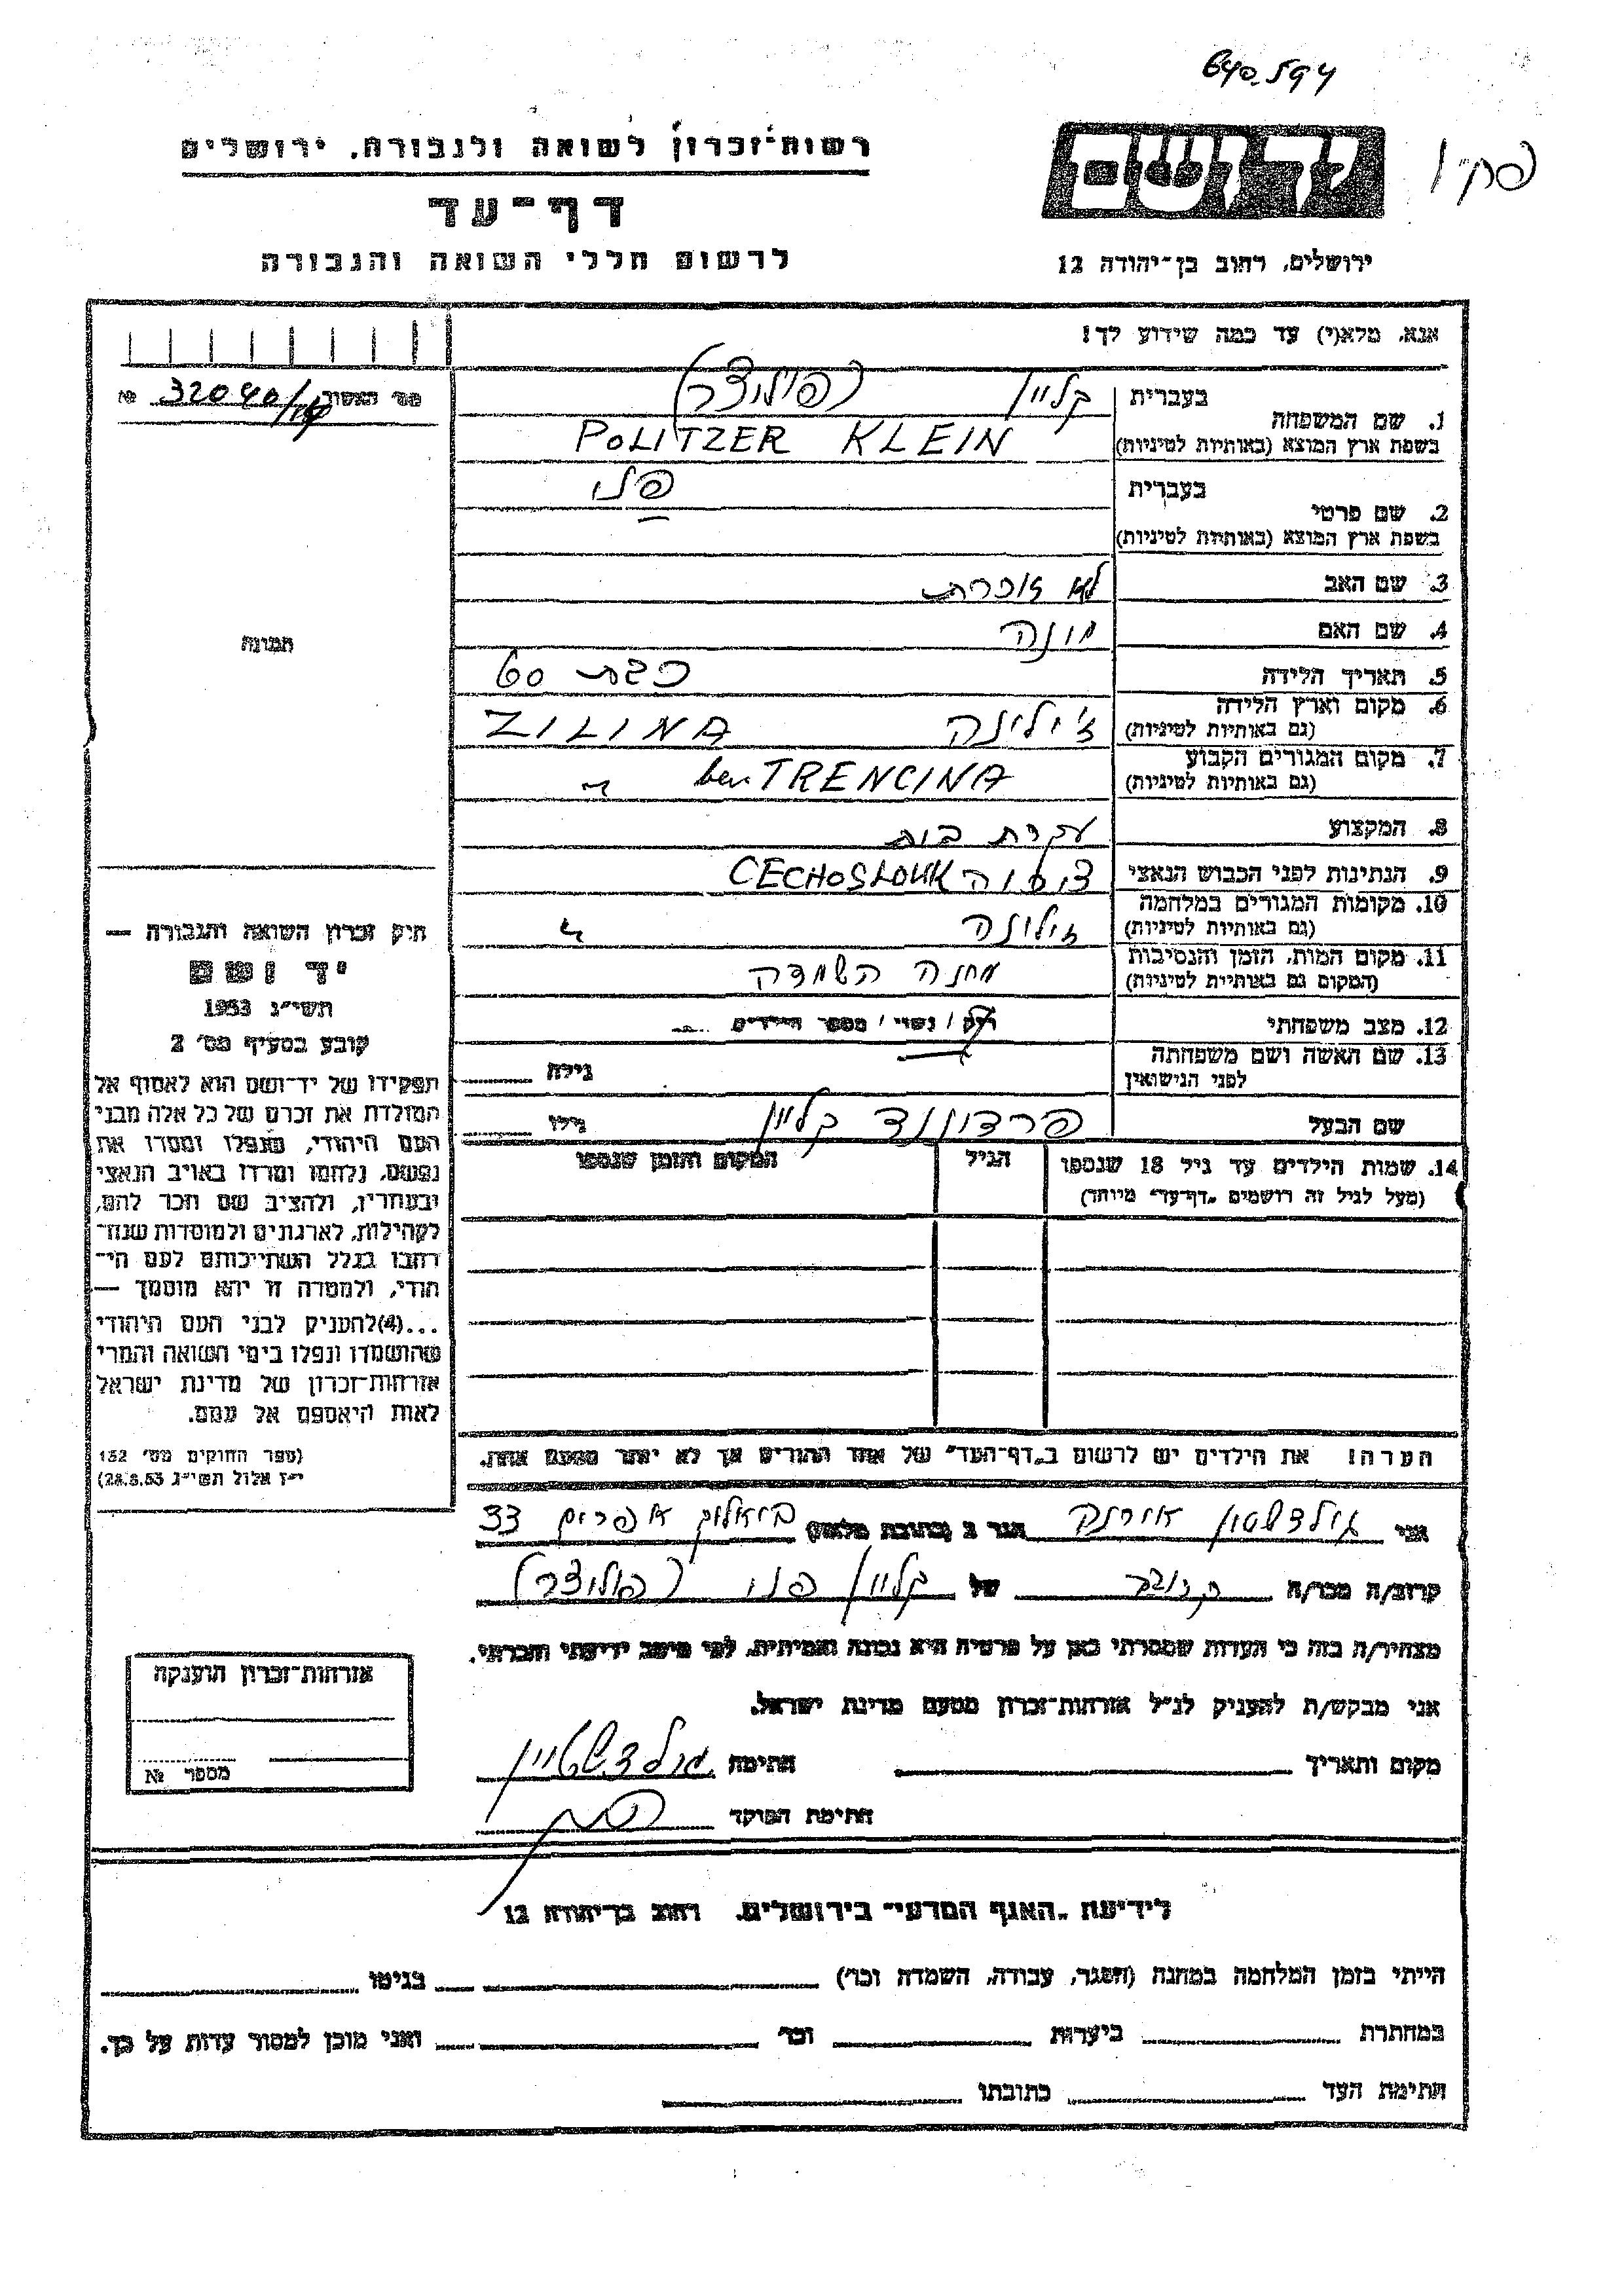 640.594
רשות-זכרון לשואה ולגבורה, ירושלים
דף-עד
לרשום חללי השואה והגבורה
יד ושם
ירושלים, רחוב בן-יהודה 12
אנא, מלא(י) עד כמה שידוע לך!
מס' האסור 32040 №
תמונה
1. שם המשפחה
בעברית קליין (פוליצר)
בשפת ארץ המוצא (באותיות לטיניות) POLITZER KLEIN
2. שם פרטי
בעברית
בשפת ארץ המוצא (באותיות לטיניות)
3. שם האב לא זוכרת
4. שם האם
5. תאריך הלידה כבת 60
6. מקום וארץ הלידה
(גם באותיות לטיניות) ז'ילינה ZILINA
7. מקום המגורים הקבוע
(גם באותיות לטיניות) TRENCINA
8. המקצוע עקרת בית
9. הנתינות לפני הכבוש הנאצי CECHOSLOUK
10. מקומות המגורים במלחמה
(גם באותיות לטיניות) זילינה
11. מקום המות, הזמן והנסיבות
(המקום גם באותיות לטיניות) מחנה השמדה
12. מצב משפחתי רוק / נשוי / מספר הילדים
13. שם האשה ושם משפחתה
לפני הנישואין גילה
שם הבעל פרדיננד קליין גילו
14. שמות הילדים עד גיל 18 שנספו הגיל המקום והזמן שנספו
(מעל לגיל זה רושמים "דף-עד" מיוחד)
הערה! את הילדים יש לרשום ב"דף-העד" של אחד ההורים אך לא יותר מפעם אחת.
חיק זכרון השואה והגבורה —
יד ושם
תשי"ג 1953
קובע בסעיף מס' 2
תפקידו של יד-ושם הוא לאסוף אל
המולדת את זכרם של כל אלה מבני
העם היהודי, שנפלו ומסרו את
נפשם, נלחמו ומרדו באויב הנאצי
ובעוזריו, ולהציב שם וזכר להם,
לקהילות, לארגונים ולמוסדות שנח-
רבו בגלל השתייכותם לעם הי-
הודי, ולמטרה זו יהא מוסמך —
...(4)להעניק לבני העם היהודי
שהושמדו ונפלו בימי השואה והמרי
אזרחות-זכרון של מדינת ישראל
לאות היאספם אל עמם.
(ספר החוקים מס' 132
י"ז אלול תשי"ג 28.8.53)
אני גולדשטיין הגר ב (כתובת מלאה) 33
קרוב/ה מכר/ה של קליין (פוליצר)
מצהיר/ה בזה כי העדות שמסרתי כאן על פרטיה היא נכונה ואמיתית, לפי מיטב ידיעתי והכרתי.
אני מבקש/ת להעניק לנ"ל אזרחות-זכרון מטעם מדינת ישראל.
מקום ותאריך חתימה גולדשטיין
חתימת הפוקד
אזרחות-זכרון תוענקה
מספר №
לידיעת "האגף המדעי" בירושלים, רחוב בן-יהודה 12
הייתי בזמן המלחמה במחנה (הסגר, עבודה, השמדה וכו') בגיטו
במחתרת ביערות וכו' ואני מוכן למסור עדות על כך.
חתימת העד כתובתו